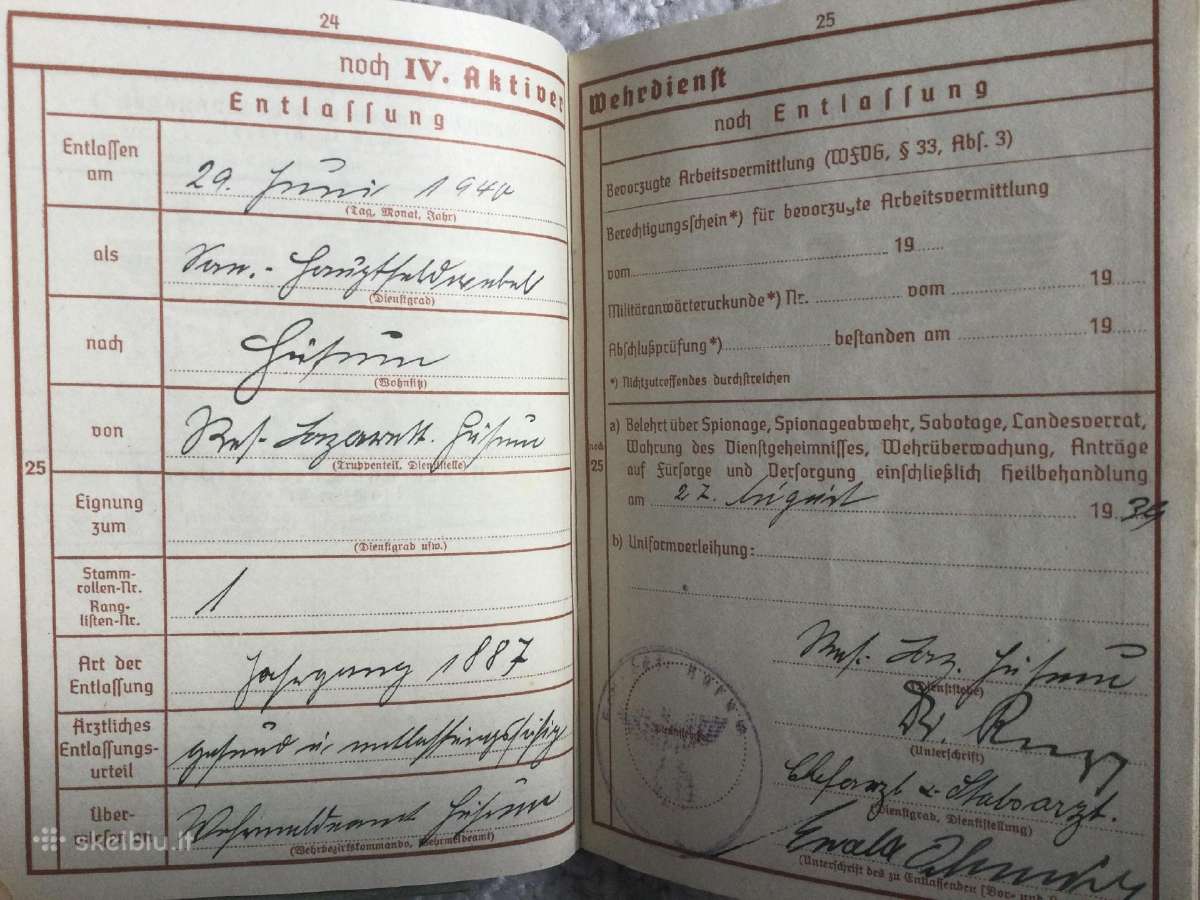 24
noch IV. Aktiver
Entlassung
Entlassen am
29. Juni 1940
(Tag, Monat, Jahr)
als
San.-Hauptfeldwebel
(Dienstgrad)
nach
Husum
(Wohnsitz)
von
Res. Lazarett. Husum
(Truppenteil, Dienststelle)
25
Eignung zum
(Dienstgrad usw.)
Stamm-
rollen-Nr.
Rang-
listen-Nr.
1
Art der
Entlassung
Jahrgang 1887
Ärztliches
Entlassungs-
urteil
gesund u. entlassungsfähig
Über-
Wehrmeldeamt Husum
(Wehrbezirkskommando, Wehrmeldeamt)
skelbiu.lt
25
Wehrdienst
noch Entlassung
Bevorzugte Arbeitsvermittlung (WFVG, § 33, Abs. 3)
Berechtigungsschein*) für bevorzugte Arbeitsvermittlung
vom 19
Militäranwärterurkunde*) Nr. vom 19
Abschlußprüfung*) bestanden am 19
*) Nichtzutreffendes durchstreichen
noch 25
a) Belehrt über Spionage, Spionageabwehr, Sabotage, Landesverrat,
Wahrung des Dienstgeheimnisses, Wehrüberwachung, Anträge
auf Fürsorge und Versorgung einschließlich Heilbehandlung
am 27. August 1939
b) Uniformverleihung:
Res. Laz. Husum
(Dienststelle)
Dr.
(Unterschrift)
Chefarzt u. Stabsarzt.
(Dienstgrad, Dienststellung)
Ewald
(Unterschrift des zu Entlassenden